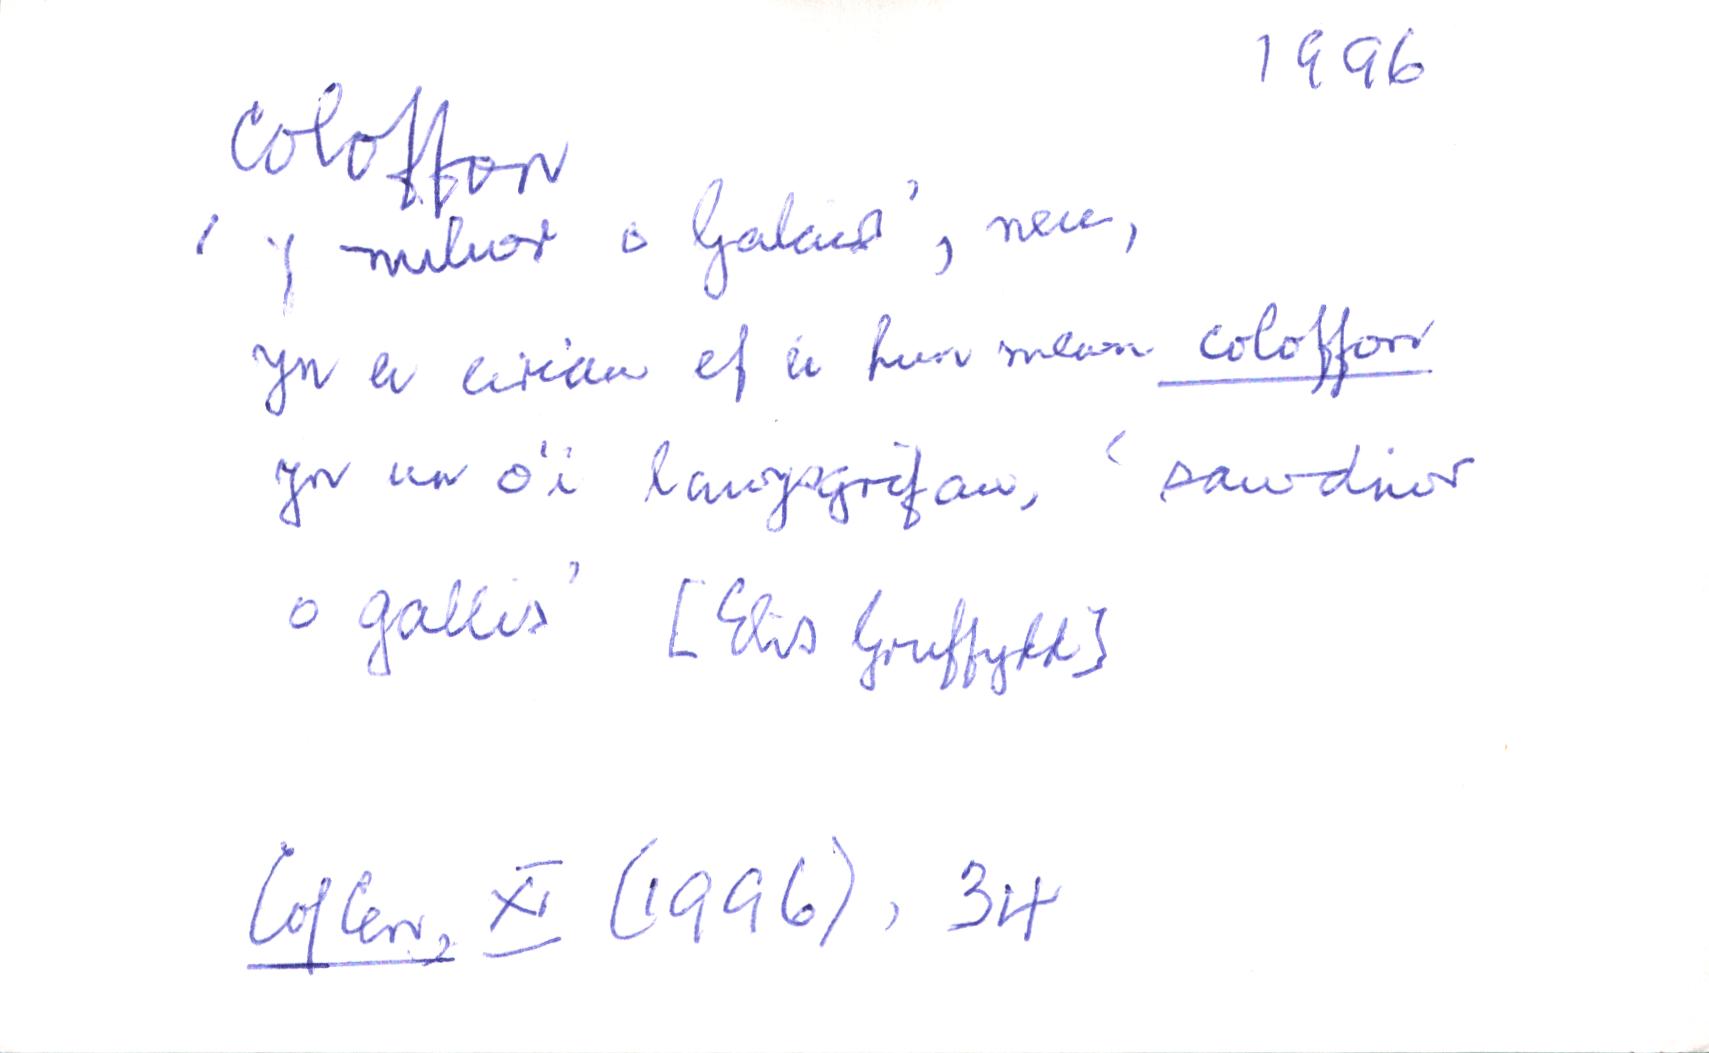 1996
coloffon
‘y milwr o Galais’, neu,
yn ei eiriau ef ei hun mewn coloffon
yn un o'i lawysgrifau, ‘sawdiwr
o gallis’ [Elis Gruffydd]
CofCen, XI (1996), 34